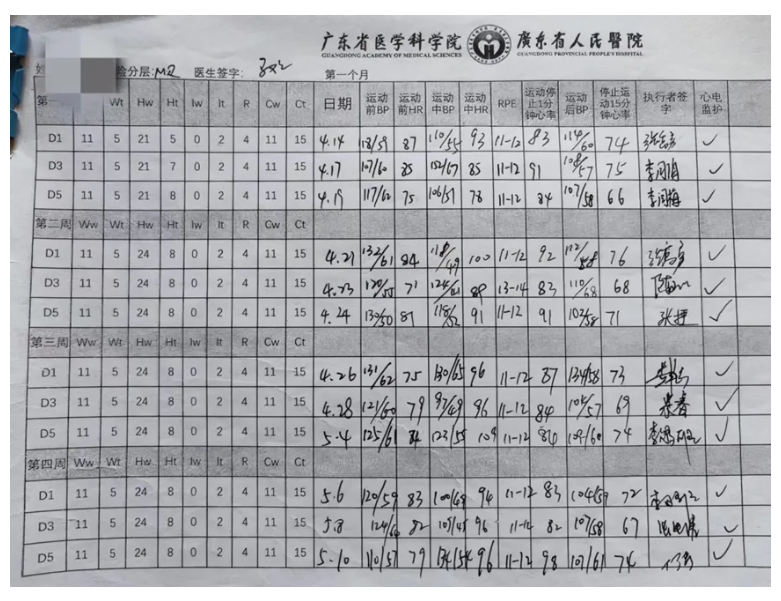 广东省医学科学院 廣東省人民醫院
GUANGDONG ACADEMY OF MEDICAL SCIENCES GUANGDONG PROVINCIAL PEOPLE'S HOSPITAL
险分层: 医生签字: 第一个月
第一 Wt Hw Ht Iw It R Cw Ct 日期 运动前BP 运动前HR 运动中BP 运动中HR RPE 运动停止1分钟心率 运动后BP 停止运动15分钟心率 执行者签字 心电监护
D1 11 5 21 5 0 2 4 11 15 4.14 118/59 87 110/55 93 11-12 83 114/60 74 ✓
D3 11 5 21 7 0 2 4 11 15 4.17 107/60 85 85 11-12 91 108/57 75 ✓
D5 11 5 21 8 0 2 4 11 15 4.19 117/62 75 78 11-12 84 107/58 66 ✓
第二周 Ww Wt Hw Ht Iw It R Cw Ct
D1 11 5 24 8 0 2 4 11 15 4.21 132/61 84 118/49 100 11-12 92 76 ✓
D3 11 5 24 8 0 2 4 11 15 4.23 71 89 13-14 83 110/68 68 ✓
D5 11 5 24 8 0 2 4 11 15 4.24 118/52 91 11-12 91 71 ✓
第三周 Ww Wt Hw Ht Iw It R Cw Ct
D1 11 5 24 8 0 2 4 11 15 4.26 131/62 75 130/65 96 11-12 87 134/58 73 ✓
D3 11 5 24 8 0 2 4 11 15 4.28 79 96 11-12 84 69 ✓
D5 11 5 24 8 0 2 4 11 15 5.4 125/61 84 123/55 109 11-12 84 109/60 74 ✓
第四周 Ww Wt Hw Ht Iw It R Cw Ct
D1 11 5 24 8 0 2 4 11 15 5.6 120/59 83 94 11-12 83 104/59 72 ✓
D3 11 5 24 8 0 2 4 11 15 5.8 82 96 11-12 82 107/58 67 ✓
D5 11 5 24 8 0 2 4 11 15 5.10 110/57 79 134/54 96 11-12 98 107/61 74 ✓